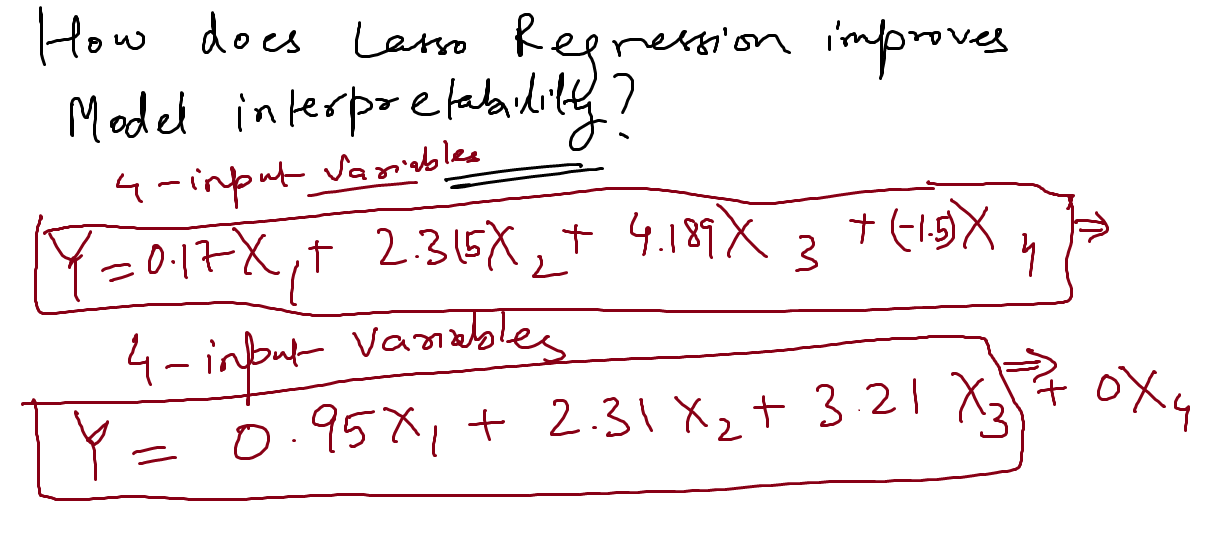 How does Lasso Regression improves
Model interpretability?
4-input Variables
Y = 0.17X₁ + 2.315X₂ + 4.189X₃ + (-1.5)X₄ ⇒
4-input Variables
Y = 0.95X₁ + 2.31X₂ + 3.21X₃ ⇒ + 0X₄